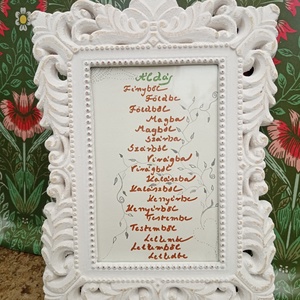 Áldás
Fényből
Földbe
Földből
Magba
Magból
Szárba
Szárból
Virágba
Virágból
Kalászba
Kalászból
Kenyérbe
Kenyérből
Testembe
Testemből
Lelkembe
Lelkemből
Lelkedbe